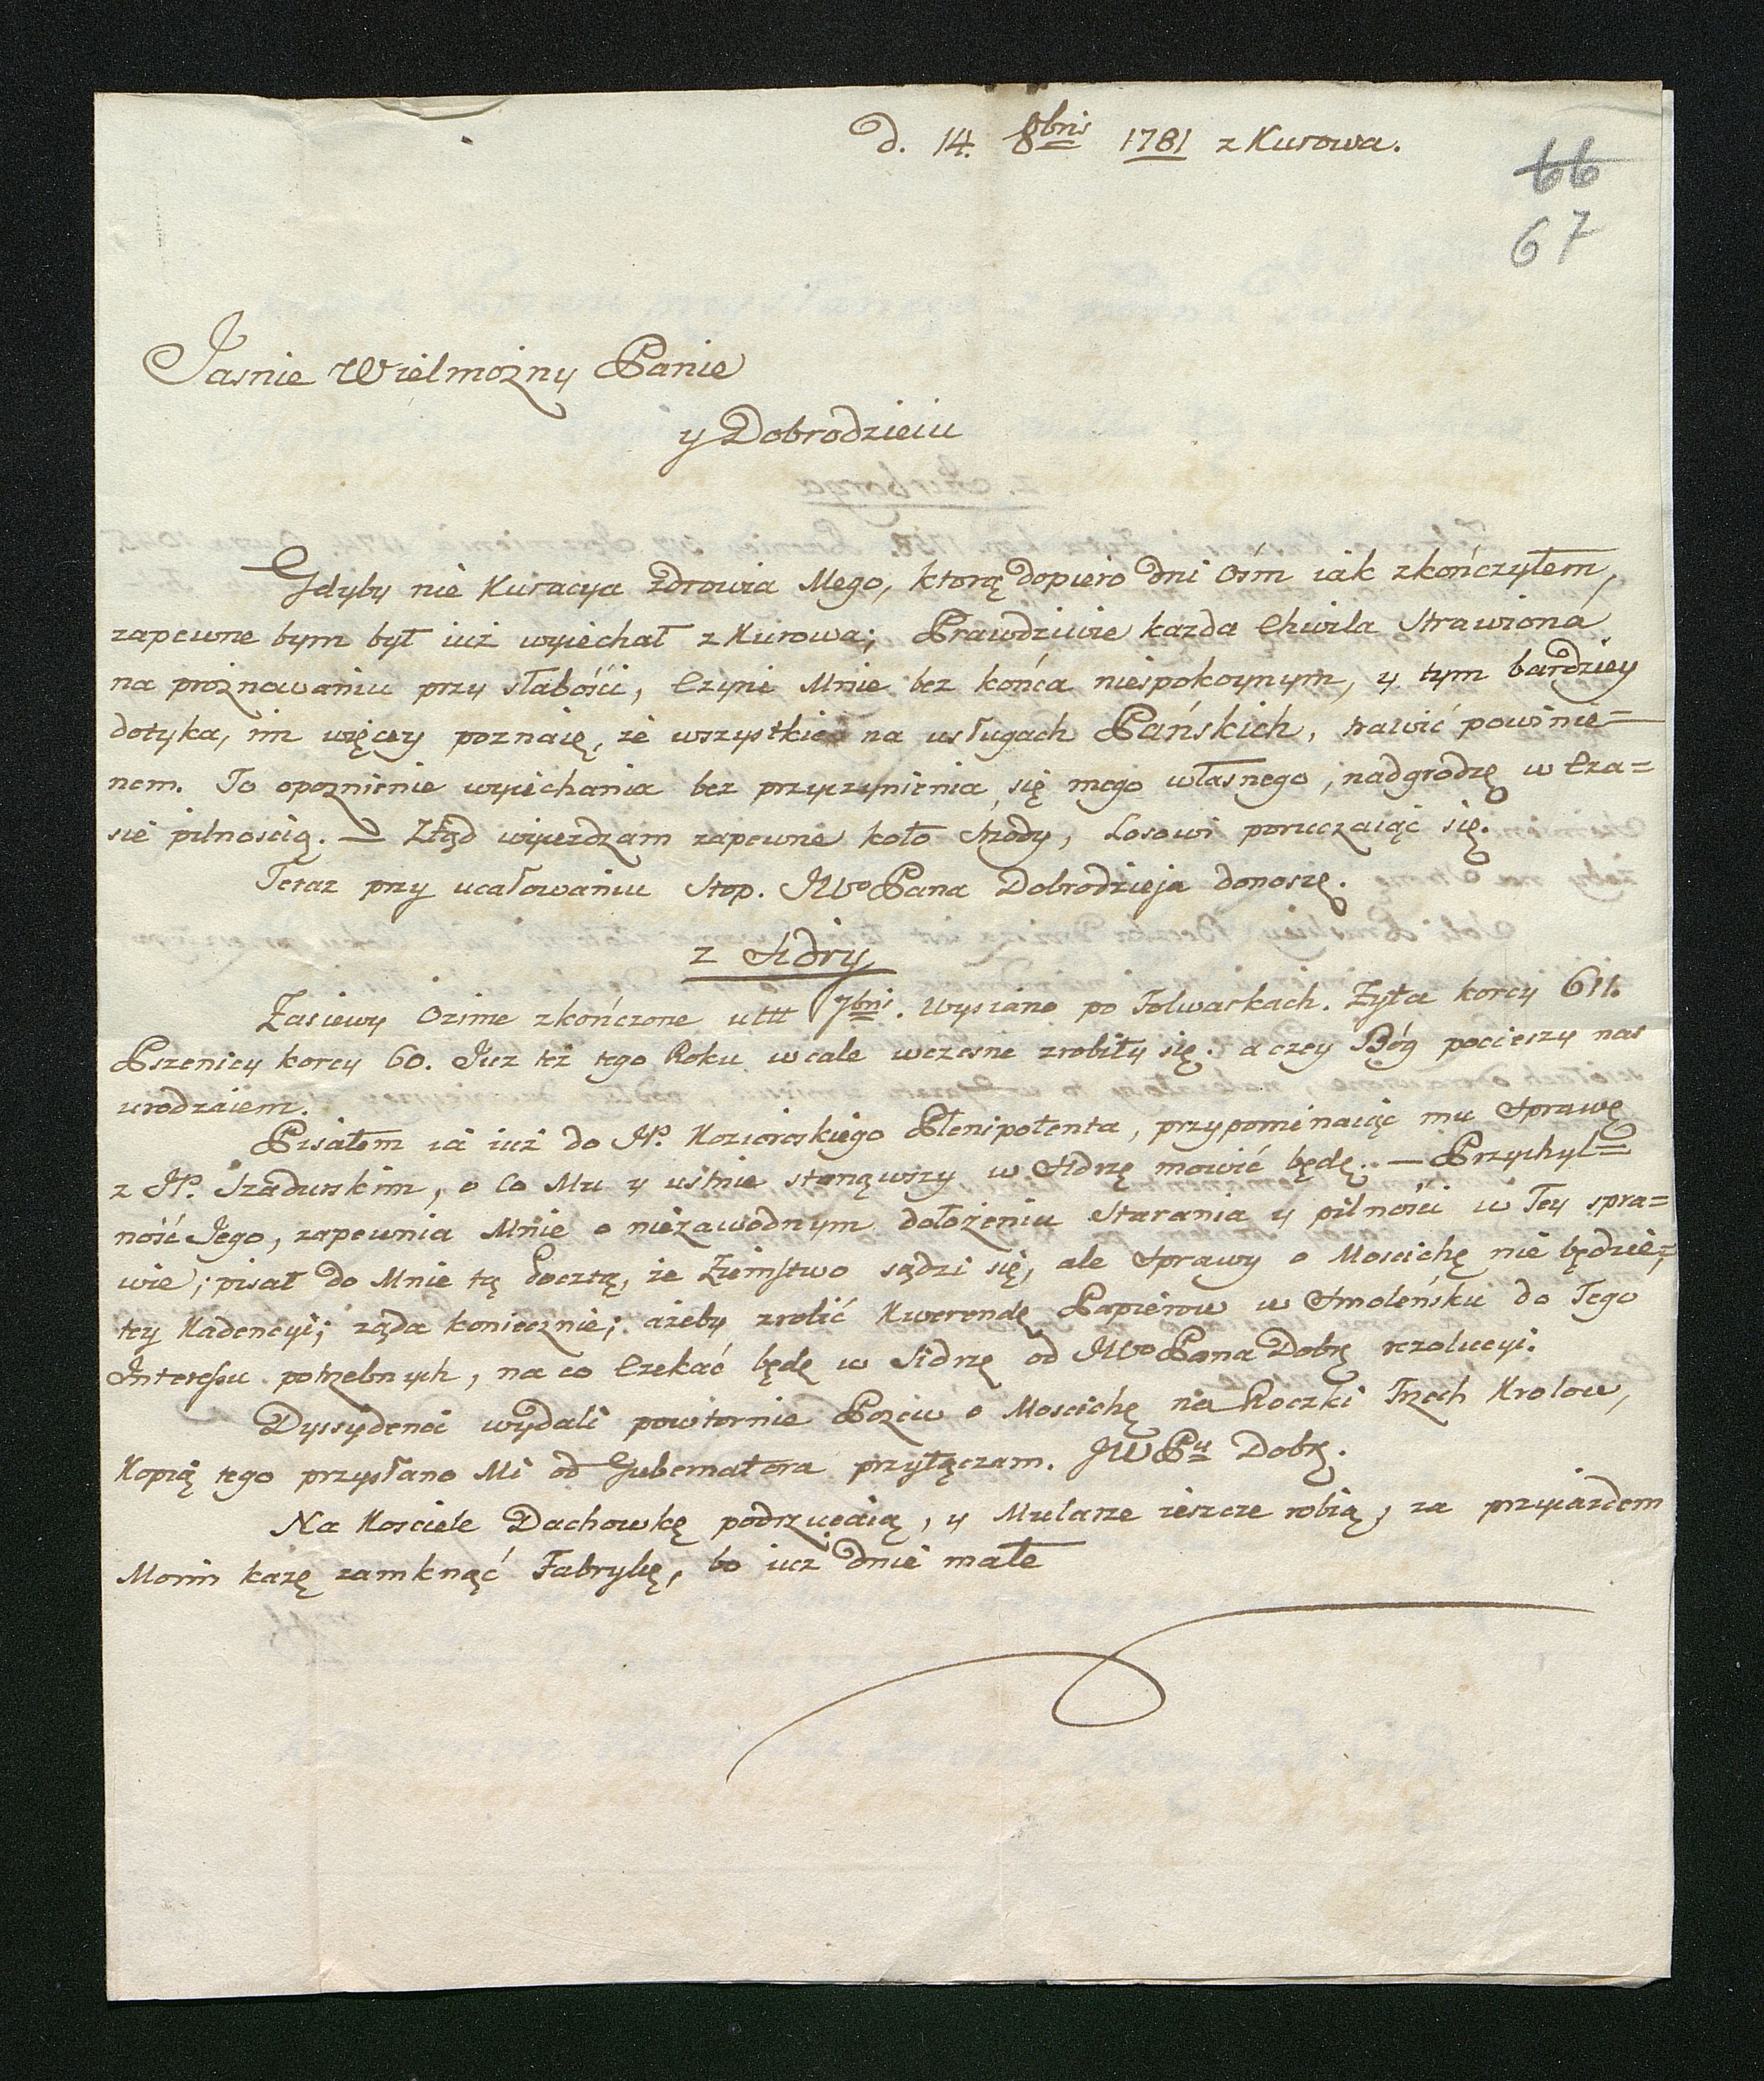 d. 14. 8bris 1781 z Kurowa.
66
67
Jasnie Wielmożny Panie
y Dobrodzieiu
Gdyby nie Kuracya zdrowia Mego, ktorą dopiero dni Ośm iak zkończyłem,
zapewne bym był iuż wyiechał z Kurowa; Prawdziwie kazda Chwila Strawiona
na proznowaniu przy słabości, Czyni Mnie bez końca niespokoynym, y tym bardziey
dotyka, im więcey poznaię, że wszystkie na usługach Pańskich, trawić powinie=
nem. To opoznienie wyiechania bez przyczynienia się mego własnego, nadgrodzę w Cza=
sie pilnoscią. — Ztąd wyiezdzam zapewne koło Srzody, Losowi poruczaiąc się.
Teraz przy ucałowaniu Stop. JWo Pana Dobrodzieja donoszę.
z Sidry
Zasiewy Ozime zkończone ult 7bris. Wysiano po Folwarkach. Żyta korcy 611.
Pszenicy korcy 60. Juz też tego Roku wcale wczesne zrobiły się. aczey Bóg pocieszy nas
urodzaiem.
Pisałem ia iuż do JP. Plenipotenta, przypominaiąc mu Sprawę
z JP. Szadurskim, o Co Mu y ustnie stanąwszy w Sidrzę mowić będę. — Przychyl=
ność Jego, zapewnia Mnie o niezawodnym dołożeniu Starania y pilności w Tey spra=
wie; pisał do Mnie tą Pocztą, że Ziemstwo sądzi się, ale Sprawy o Moscichę nie będzie,=
tey Kadencyi; ząda koniecznie; ażeby zrobić Kwerendę Papierow w Smoleńsku do Tego
Interessu potrzebnych, na co Czekać będę w Sidrzę od JWo Pana Dobrę rezolucyi.
Dyssydenci wydali powtornie Pozew o Moscichę na Roczki Trzech Krolow,
Kopią tego przysłano Mi od Gubernatora przyłączam. JWPu Dobrę.
Na Kosciele Dachowkę podrzucaią, y Mularze ieszcze robią, za przyiazdem
Moim każę zamknąć Fabrykę, bo iuz dnie małe